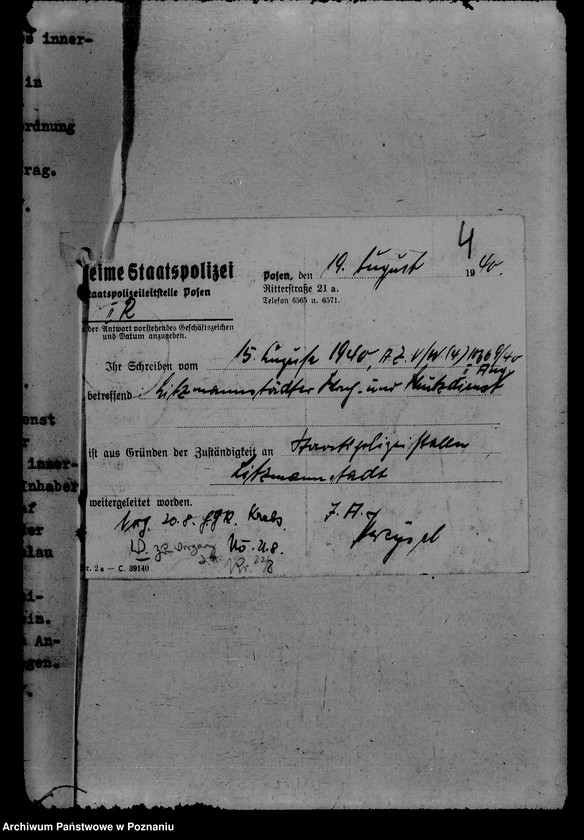 inner-
in
ordnung
rag.
4
eime Staatspolizei
taatspolizeileitstelle Posen
II R
der Antwort vorstehendes Geschäftszeichen
und Datum anzugeben.
Posen, den 19. August 1940.
Ritterstraße 21 a.
Telefon 6565 u. 6571.
Ihr Schreiben vom 15. August 1940, A.Z.
betreffend Litzmannstädter Wach- und Schutzdienst
ist aus Gründen der Zuständigkeit an Staatspolizeistelle
Litzmannstadt
weitergeleitet worden.
I. A.
20.8. Krebs.
zu Vorgang
21.8.
22/8
r. 2a — C. 39140
enst
r
inner-
Inhaber
f
der
lau
i-
ein.
An-
gen.
Archiwum Państwowe w Poznaniu